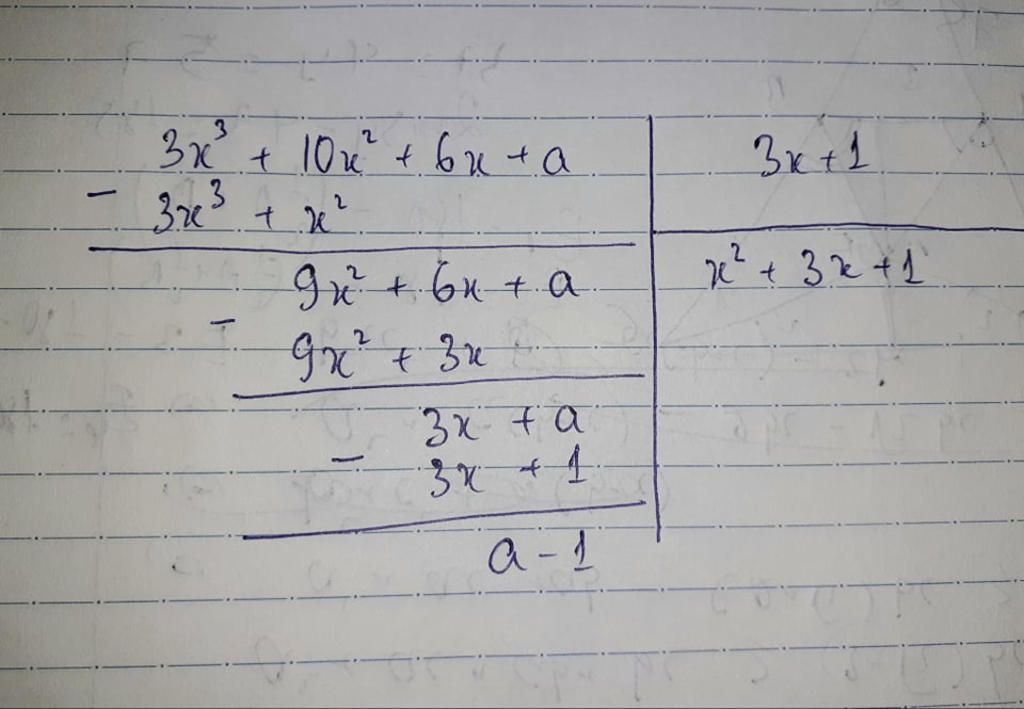 3x³ + 10x² + 6x + a
3x + 1
- 3x³ + x²
x² + 3x + 1
9x² + 6x + a
- 9x² + 3x
3x + a
- 3x + 1
a - 1